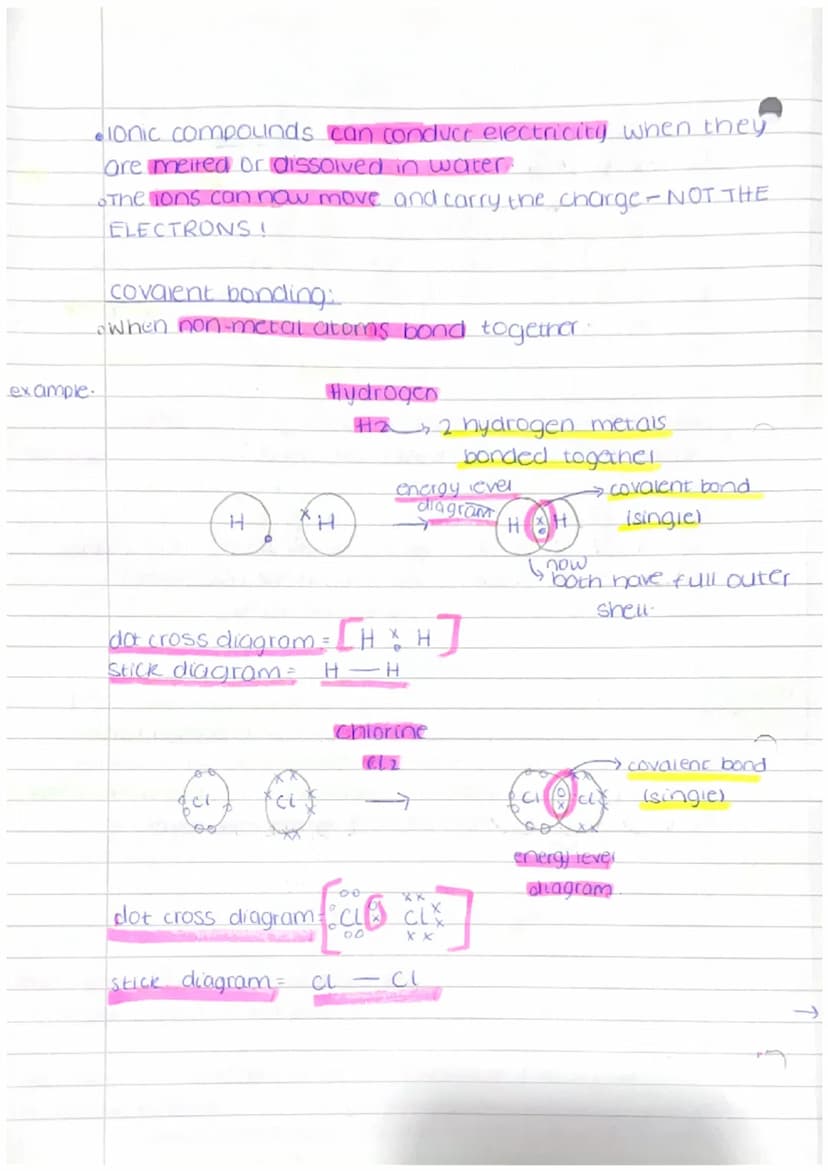 • Ionic compounds can conduct electricity when they
are melted or dissolved in water.
• The ions can now move and carry the charge - NOT THE
ELECTRONS!
covalent bonding:
• When non-metal atoms bond together.
example.
Hydrogen
H2 → 2 hydrogen metals
bonded together
energy level
diagram
covalent bond
(single)
H
H
H
H
now
both have full outer
shell.
dot cross diagram = [H H]
stick diagram = H — H
Chlorine
Cl2
covalent bond
(single)
Cl
Cl
Cl
Cl
energy level
diagram
dot cross diagram = [Cl Cl]
stick diagram = Cl — Cl